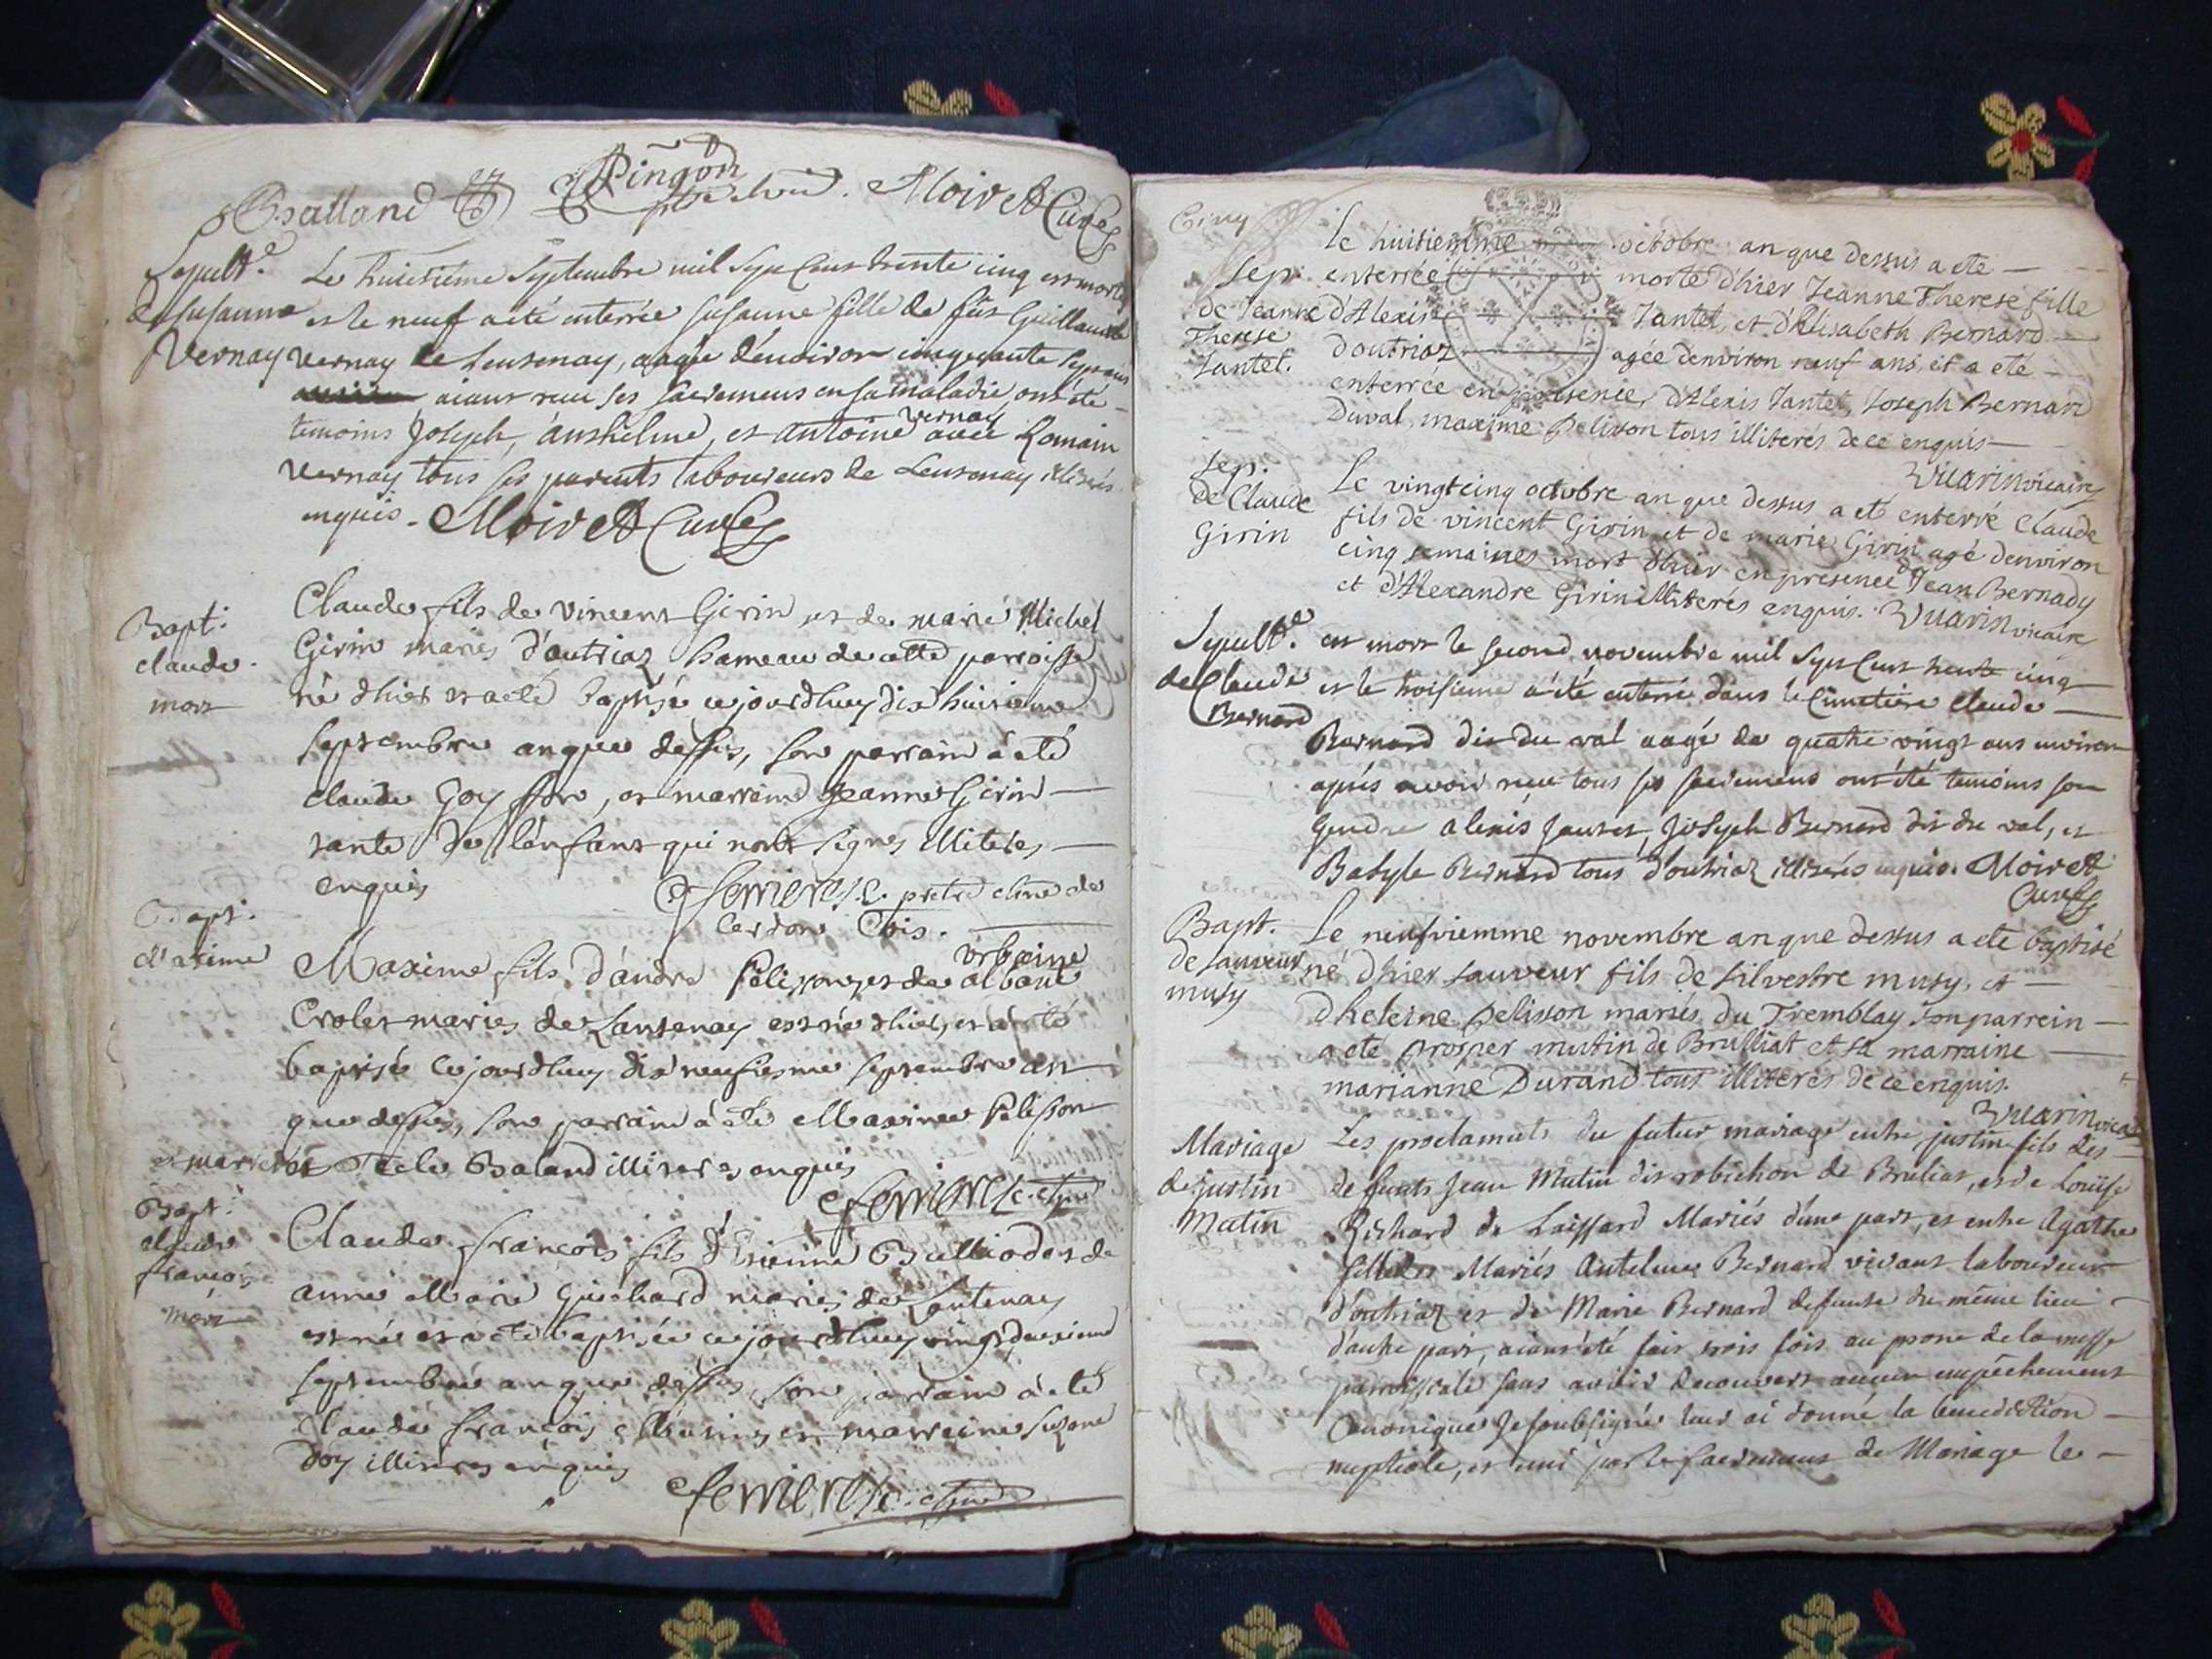 Balland Pingon Moiret Curé
Sepult.e Le huictieme Septembre mil Sept Cens trente cinq est morte
de susanne et le neuf a eté enterrée susanne fille de fût Guillaume
Vernay vernay de Leutenay, aagée d'environ cinquante sept ans
aiant receu ses sacremens en sa maladie, ont été
temoins Joseph, Anthelme, et Antoine vernay avec Romain
vernay tous ses parents laboureurs de Leutenay illiterés
enquis. Moiret Curé
Bapt: Claude fils de vincent Girin et de marie Michel
claude Girin mariés d'outriaz hameau de cette parroisse
mort né d'hier et a eté baptisé ce jourdhuy dix huitieme
septembre an que dessus, son parrain a eté
claude Goyffon, et marraine Jeanne Girin
tante de l'enfant qui n'ont signés illiterés
enquis ferriere pretre de
Cerdon
Bapt. Maxime fils d'andré Pelisson et de urbaine
Maxime
Crolet mariés de Lantenay est né d'hier, et a eté
baptisé ce jourdhuy dix neufiesme septembre an
que dessus, son parrain a eté Maxime Pelisson
et marraine Baland illiteres enquis
ferriere
Bapt: Claude françois fils d'Etienne Balliod et de
claude
françois anne Marie Guichard mariés de Lantenay
mort est né et a eté baptisé ce jourdhuy vingt deuxieme
septembre an que dessus, son parrain a eté
Claude françois et marraine Suzane
illiteres enquis
ferriere
Cinq Le huitiemme octobre an que dessus a eté
Sep. enterrée morte d'hier Jeanne Therese fille
de Jeanne d'Alexis Jantet, et d'Elisabeth Bernard
Therese
Jantet. d'outriaz agée denviron neuf ans, et a eté
enterrée en presence d'Alexis Jantet, Joseph Bernard
Duval, maxime Pelisson tous illiterés de ce enquis
Vuarin vicaire
Sep. Le vingtcinq octobre an que dessus a eté enterré Claude
de Claude fils de vincent Girin et de marie Girin agé denviron
Girin cinq semaines mort d'hier en presence d'Jean Bernady
et d'Alexandre Girin illiterés enquis. Vuarin vicaire
Sepult.e est mort le second novembre mil Sept Cens trente cinq
de Claude et le troisieme a été enterré dans le Cimetière Claude
Bernard Bernard dit du val aagé de quatre vingt ans environ
après avoir receu tous ses sacremens ont été temoins son
gendre alexis Jantet, Joseph Bernard dit du val, et
Babyle Bernard tous d'outriaz illiterés enquis. Moiret
Curé
Bapt. Le neufviemme novembre an que dessus a eté baptisé
de sauveur né d'hier sauveur fils de silvestre musy, et
musy d'heleine Pelisson mariés du Tremblay son parrein
a eté prosper mutin de Brulliat et sa marraine
marianne Durand tous illiterés de ce enquis.
Vuarin vicaire
Mariage Les proclamats du futur mariage entre justin fils des
de justin defunts Jean Mutin dit robichon de Brulias, et de Louise
Mutin Richard de Laissard Mariés d'une part, et entre Agathe
fille des Mariés Antelme Bernard vivant laboureur
d'outriaz et de Marie Bernard defunte du même lieu
d'autre part, aiant été fait trois fois au prone de la messe
parroissiale sans avoir decouvert aucun empêchement
Canonique Je soubsigné leur ai donné la benediction
nuptiale, et uni par le sacrement de Mariage le